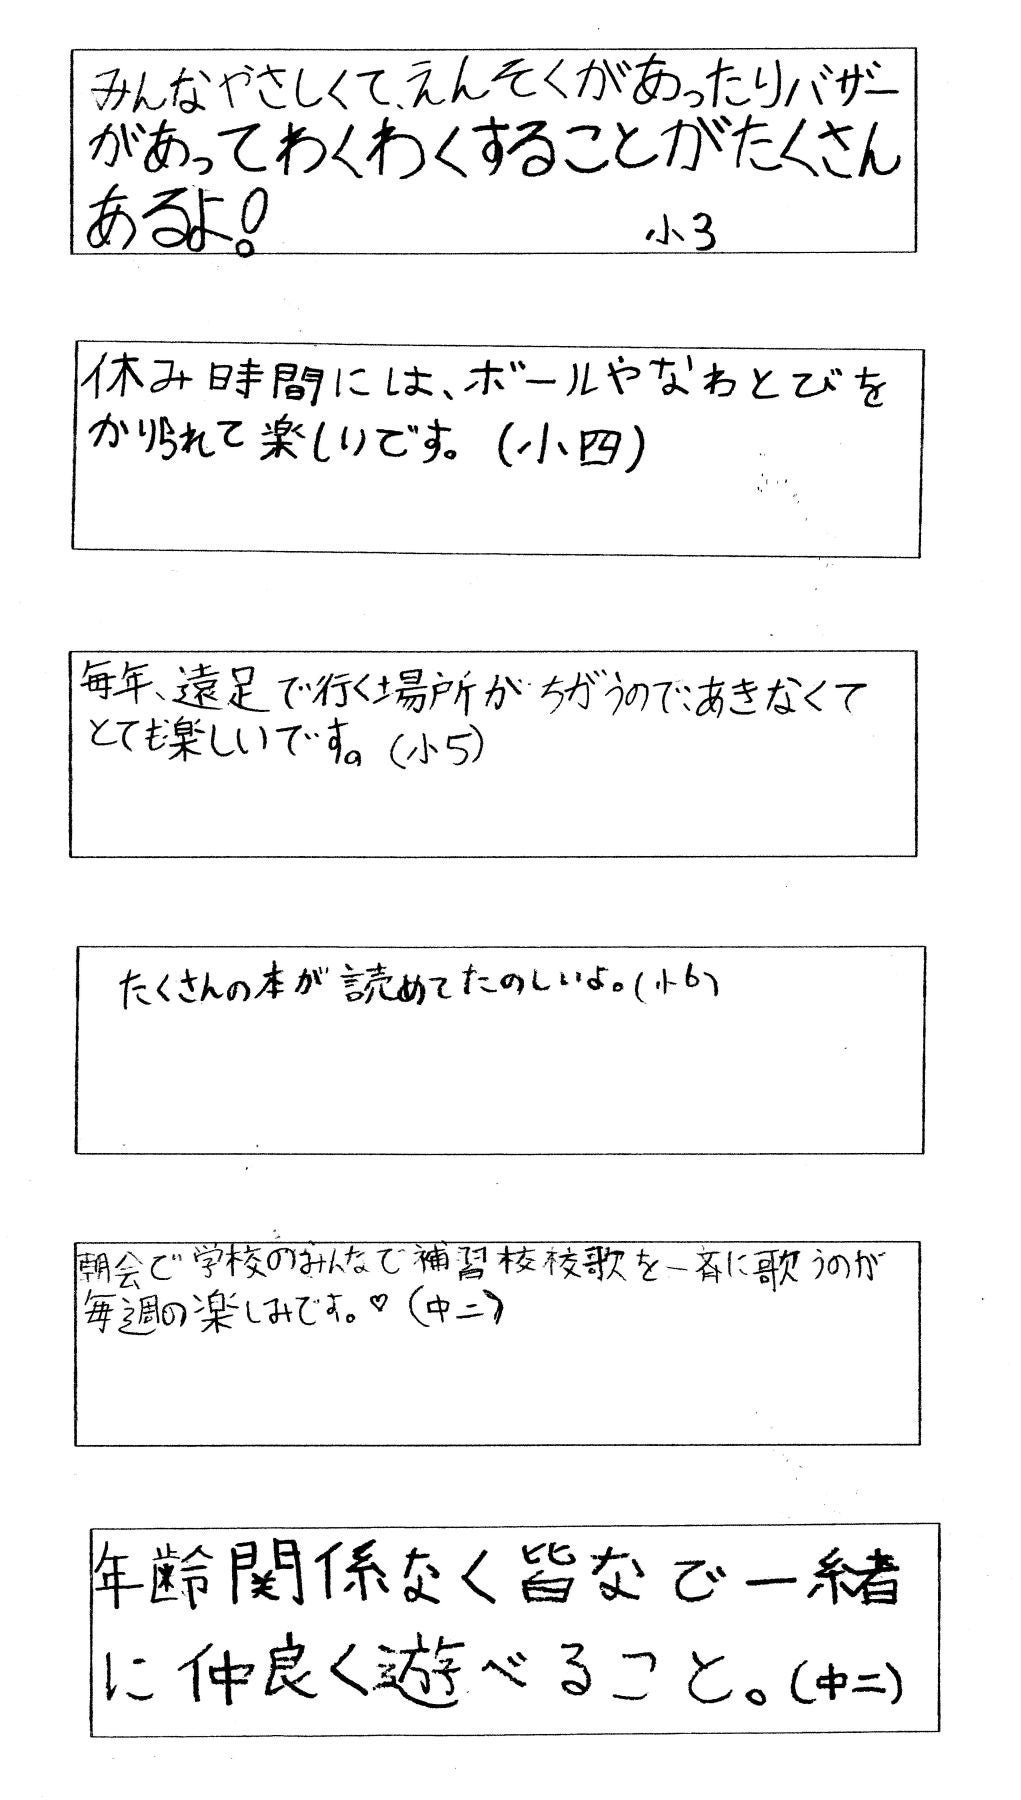 みんなやさしくて、えんそくがあったりバザー
があってわくわくすることがたくさん
あるよ!
小3
休み時間には、ボールやなわとびを
かりられて楽しいです。(小四)
毎年、遠足で行く場所がちがうので、あきなくて
とても楽しいです。(小5)
たくさんの本が読めてたのしいよ。(小6)
朝会で学校のみんなで補習校校歌を一斉に歌うのが
毎週の楽しみです。♡(中二)
年齢関係なく皆なで一緒
に仲良く遊べること。(中二)